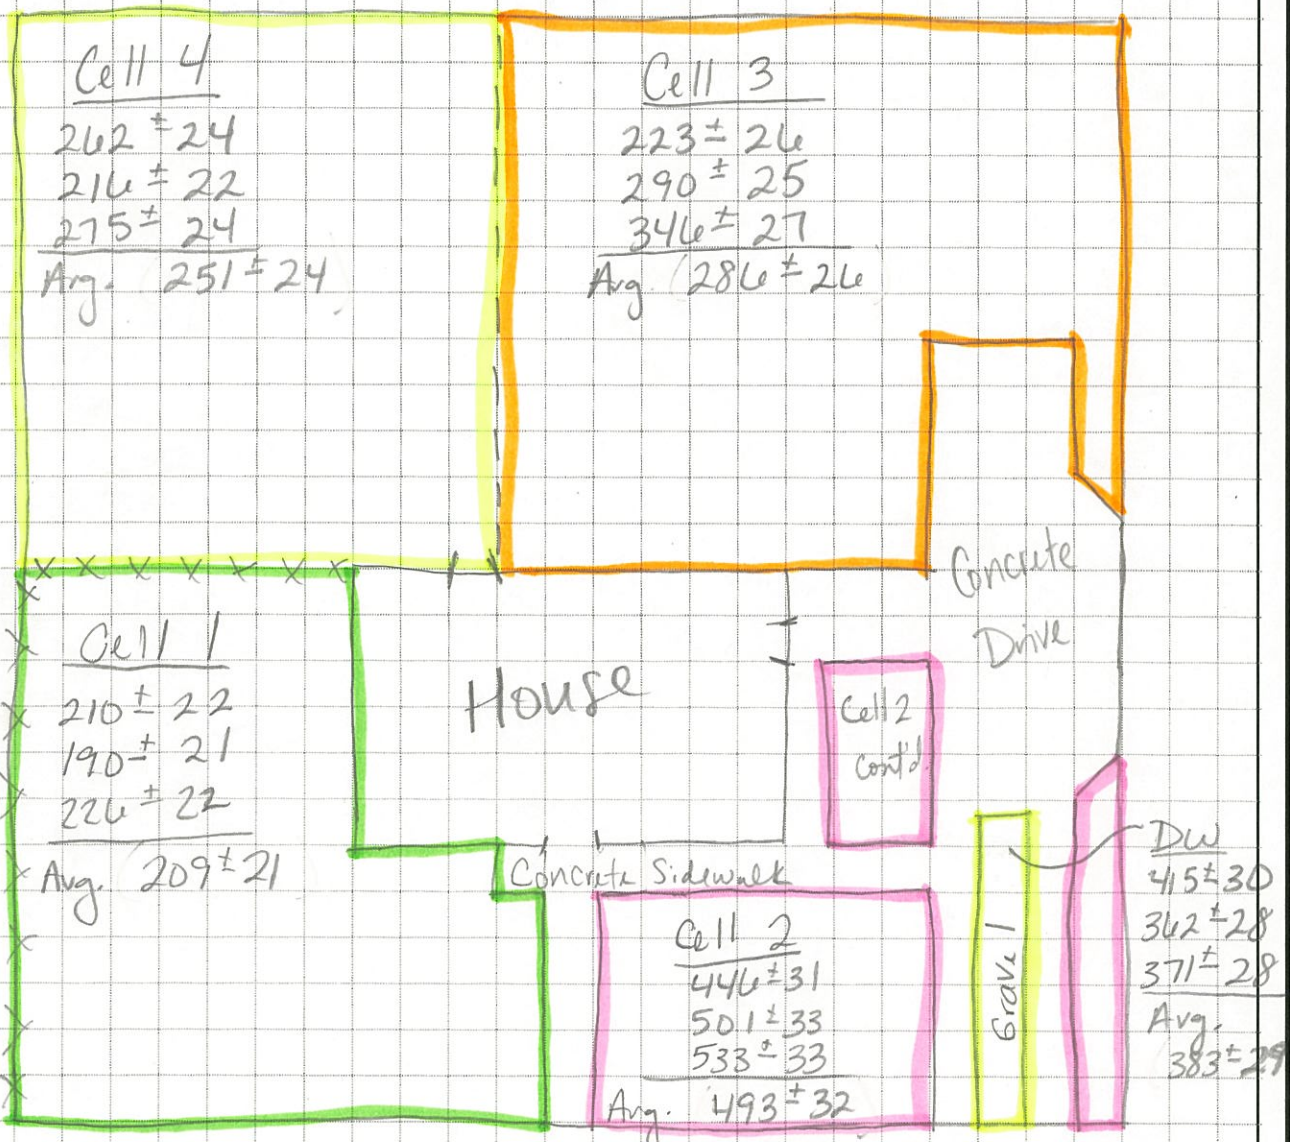 Cell 4
262 ± 24
216 ± 22
275 ± 24
Avg. 251 ± 24
Cell 3
223 ± 26
290 ± 25
346 ± 27
Avg 286 ± 26
Concrete
Drive
Cell 1
210 ± 22
190 ± 21
226 ± 22
Avg. 209 ± 21
House
Cell 2
Cont'd.
Concrete Sidewalk
Cell 2
446 ± 31
501 ± 33
533 ± 33
Avg. 493 ± 32
Gravel
DW
415 ± 30
362 ± 28
371 ± 28
Avg.
383 ± 29